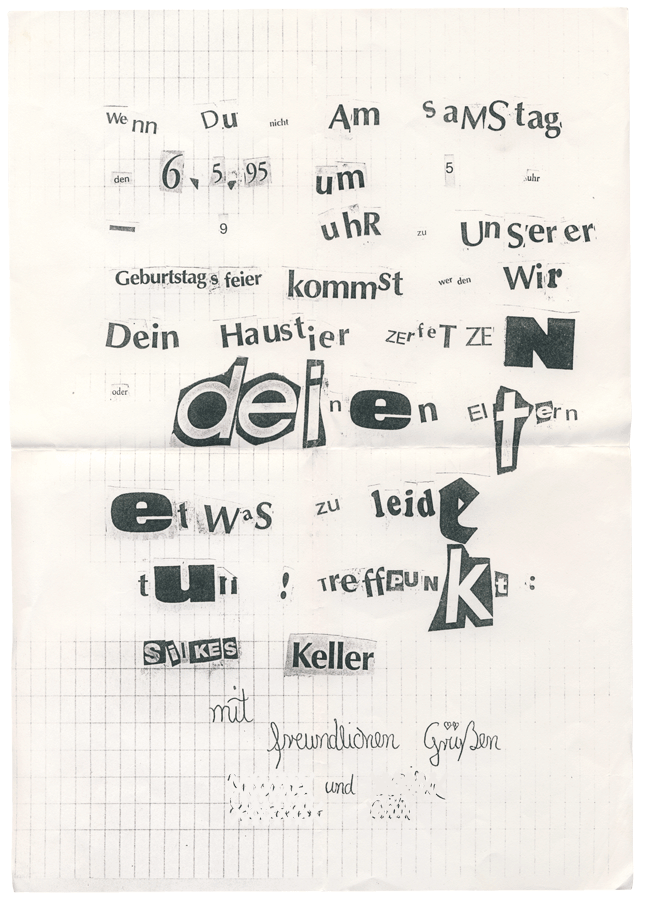 Wenn Du nicht Am SaMStag
den 6.5.95 um 5 uhr
– 9 uhR zu UnSerer
Geburtstagsfeier kommst werden Wir
Dein Haustier ZErfeTZEN
oder deinen Eltern
etWaS zu leide
tun ! TreffPUNkt :
SilKES Keller
mit
freundlichen Grüßen
und